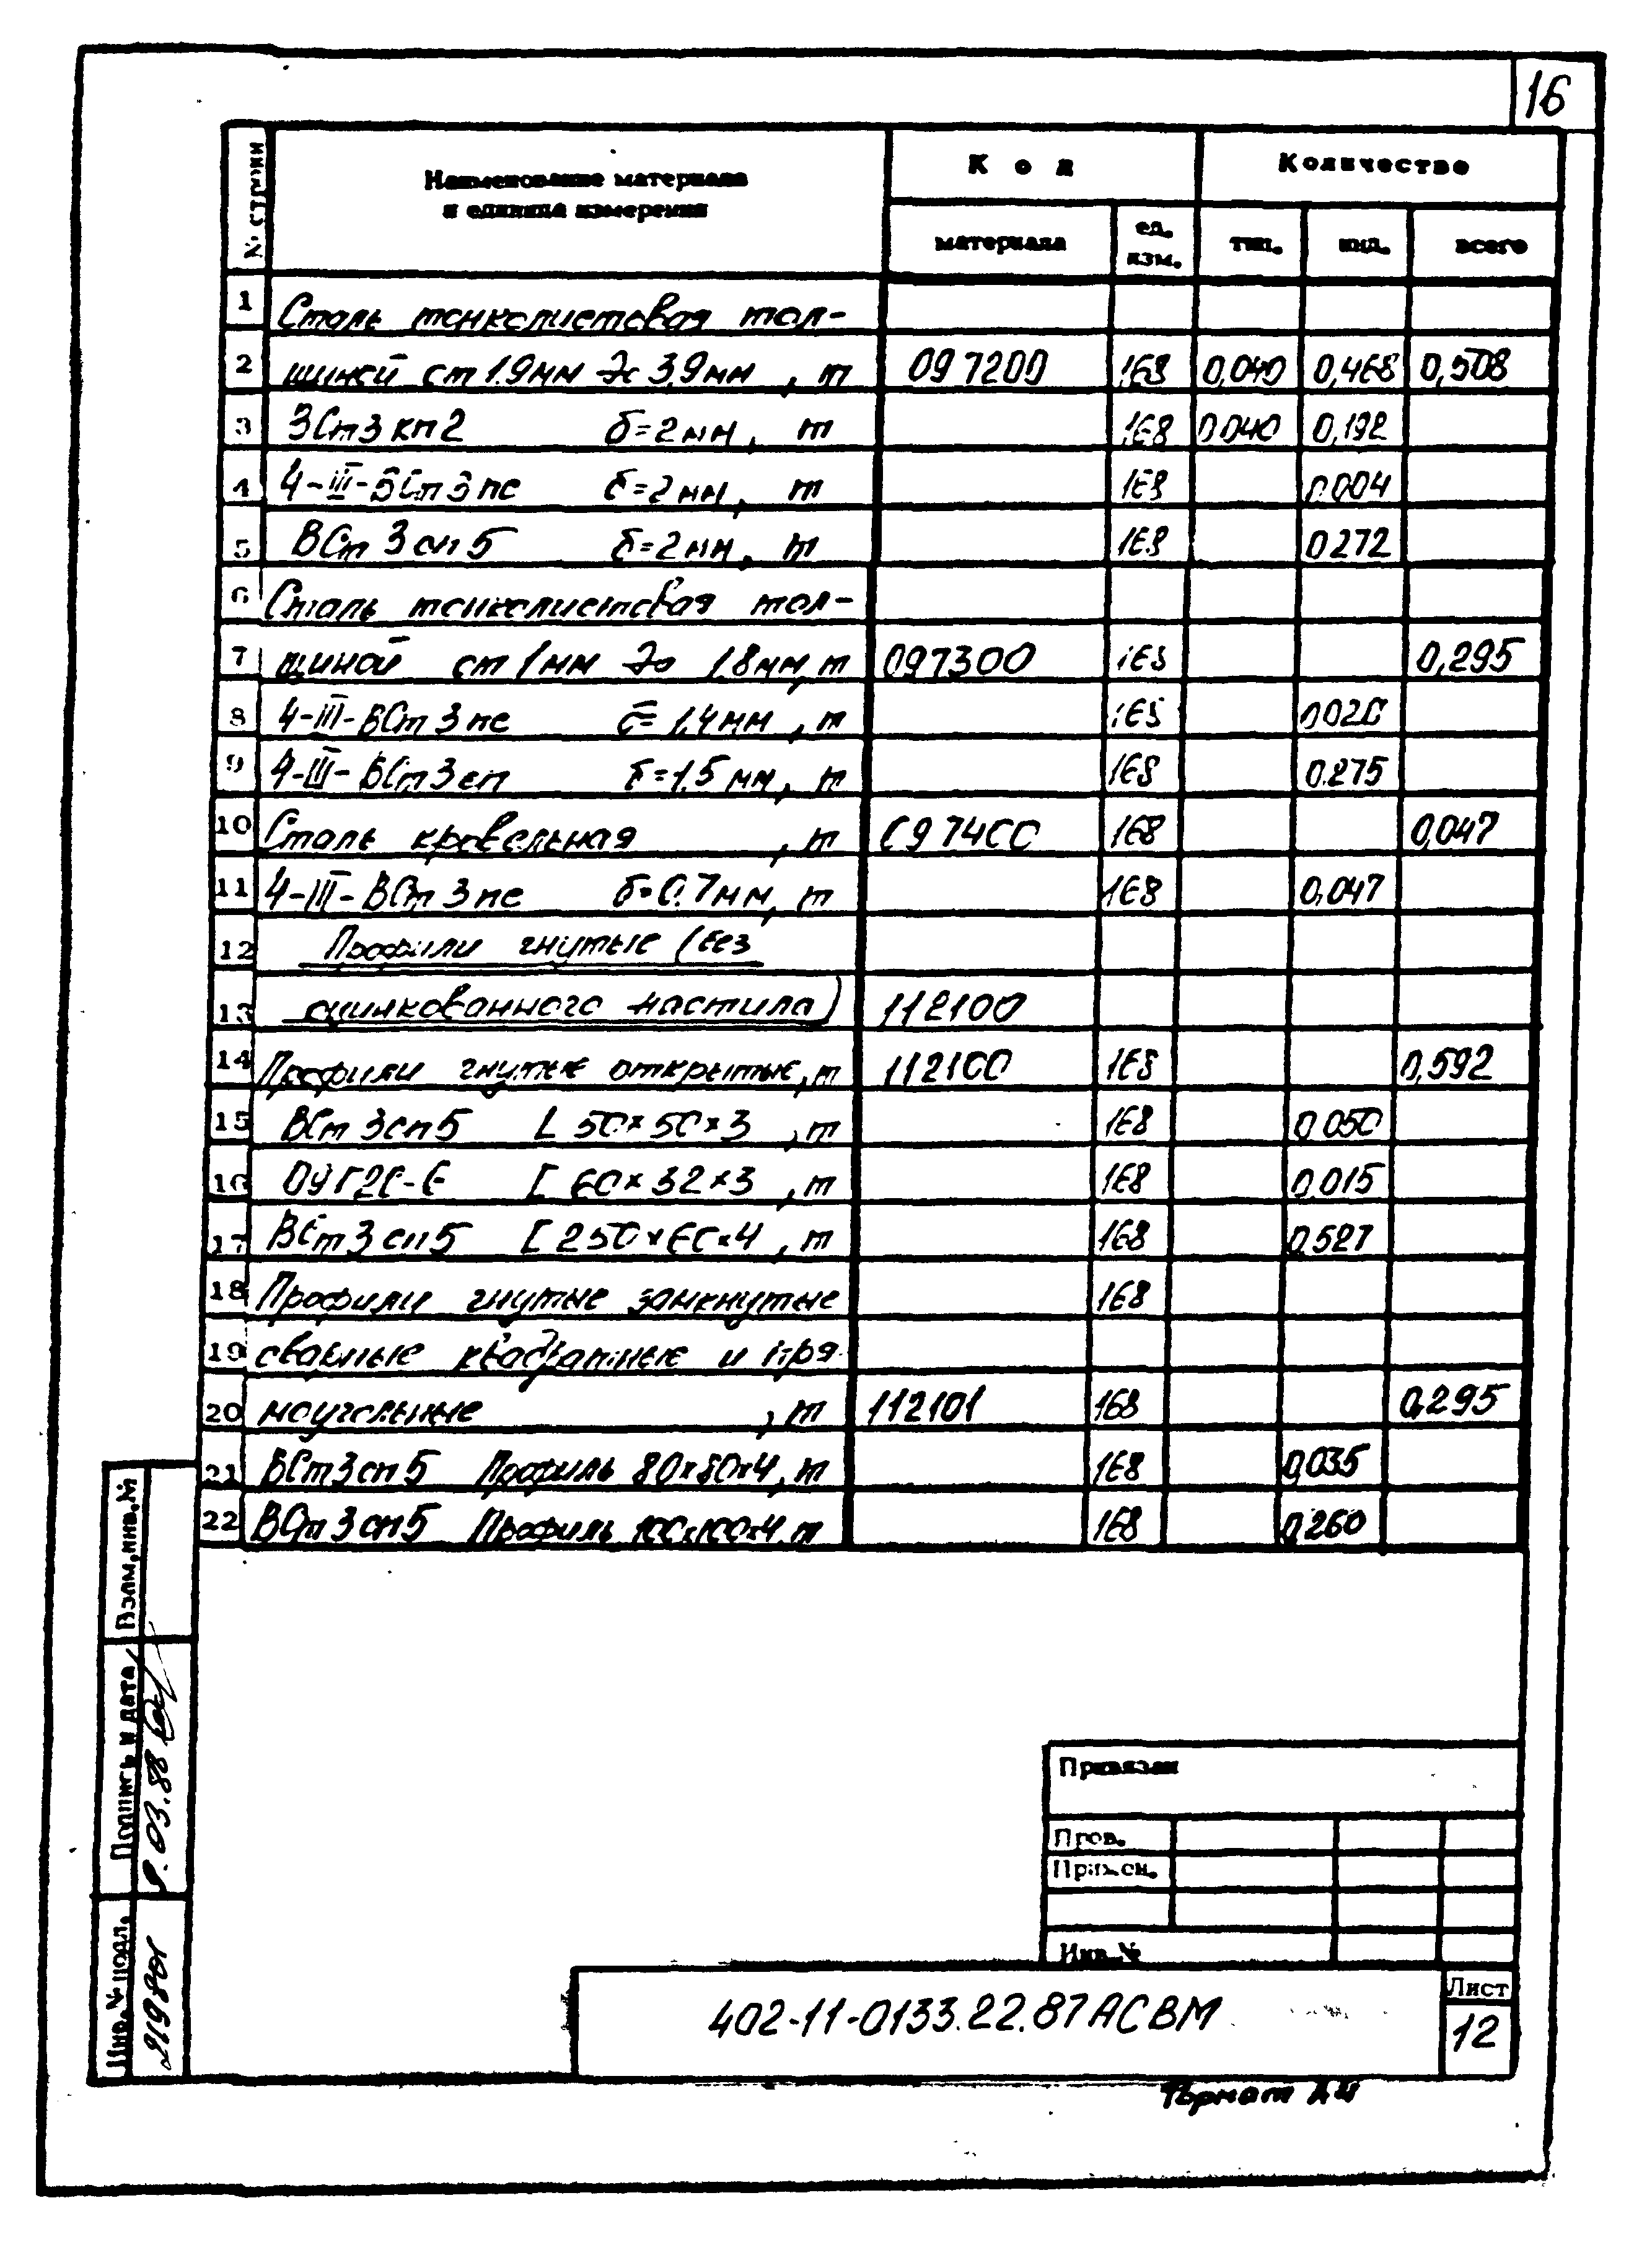 16
№ строки
Наименование материала
и единица измерения
Код
Количество
материала
ед. изм.
тип.
инд.
всего
1 Сталь тонколистовая тол-
2 щиной от 1.9мм до 3,9мм , т 097200 168 0,040 0,468 0,508
3 ВСт3кп2 δ=2мм, т 168 0.040 0,192
4 4-III-ВСт3пс δ=2мм, т 168 0.004
5 ВСт3сп5 δ=2мм, т 168 0272
6 Сталь тонколистовая тол-
7 щиной от 1мм до 1.8мм, т 097300 168 0,295
8 4-III-ВСт3пс δ=1,4мм , т 168 0020
9 4-III-ВСт3сп δ=1.5мм, т 168 0.275
10 Сталь кровельная , т 097400 168 0,047
11 4-III-ВСт3пс δ=0.7мм, т 168 0,047
12 Профили гнутые (без
13 оцинкованного настила) 112100
14 Профили гнутые открытые, т 112100 168 0,592
15 ВСт3сп5 L 50×50×3 , т 168 0.050
16 09Г2С-6 [ 60×32×3 , т 168 0,015
17 ВСт3сп5 [ 250×60×4 , т 168 0,527
18 Профили гнутые замкнутые 168
19 сварные квадратные и пря-
20 моугольные , т 112101 168 0,295
21 ВСт3сп5 Профиль 80×80×4, т 168 0,035
22 ВСт3сп5 Профиль 100×100×4, т 168 0,260
Взам.инв.№
Подпись и дата
03.88
Инв.№подл.
21980
Привязан
Пров.
Инв.№
402-11-0133.22.87 АСВМ
Лист
12
Формат А4